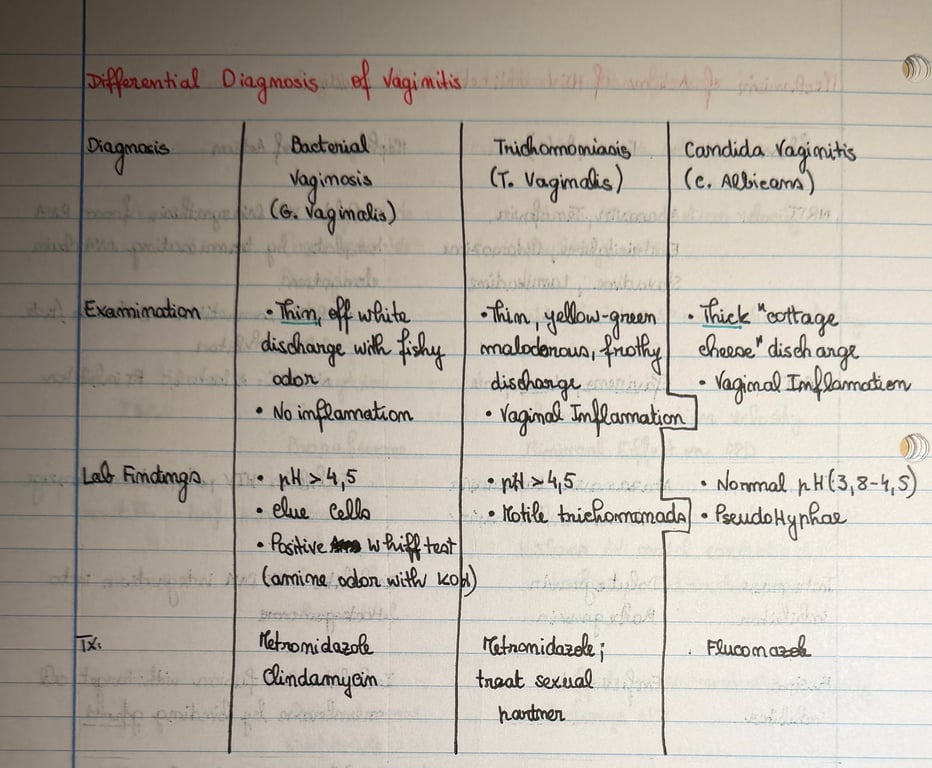 Differential Diagnosis of Vaginitis
Diagnosis
Bacterial
Vaginosis
(G. Vaginalis)
Trichomoniasis
(T. Vaginalis)
Candida Vaginitis
(C. Albicans)
Examination
• Thin, off white
discharge with fishy
odor
• No inflamation
• Thin, yellow-green
malodorous, frothy
discharge
• Vaginal Inflamation
• Thick "cottage
cheese" discharge
• Vaginal Inflamation
Lab Findings
• pH > 4,5
• Clue Cells
• Positive whiff test
(amine odor with KOH)
• pH > 4,5
• Motile trichomonads
• Normal pH (3,8-4,5)
• PseudoHyphae
Tx:
Metronidazole
Clindamycin
Metronidazole;
treat sexual
partner
. Fluconazole